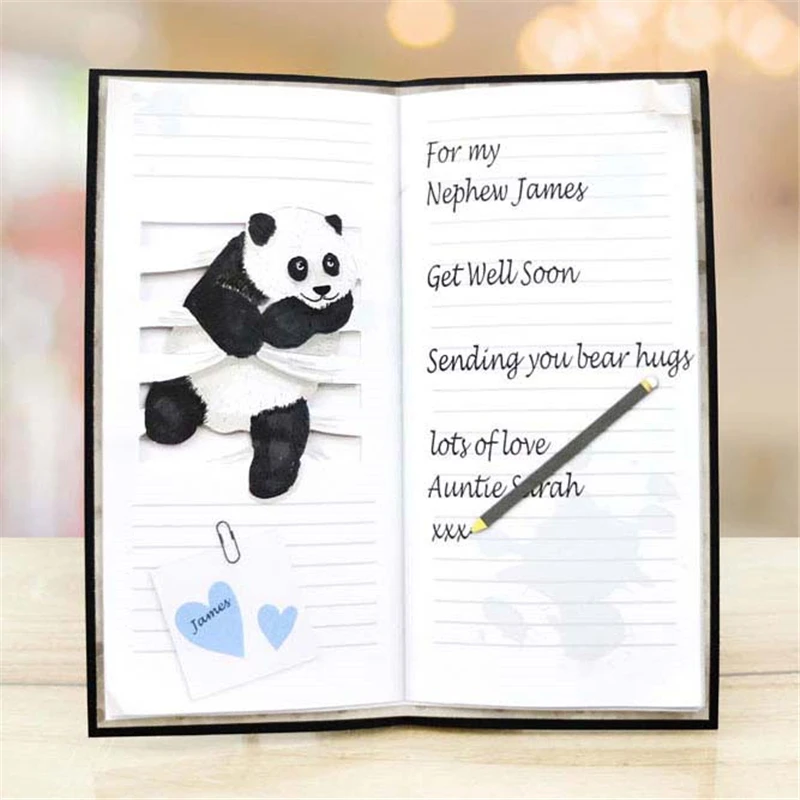 James
For my
Nephew James
Get Well Soon
Sending you bear hugs
lots of love
Auntie Sarah
xxx